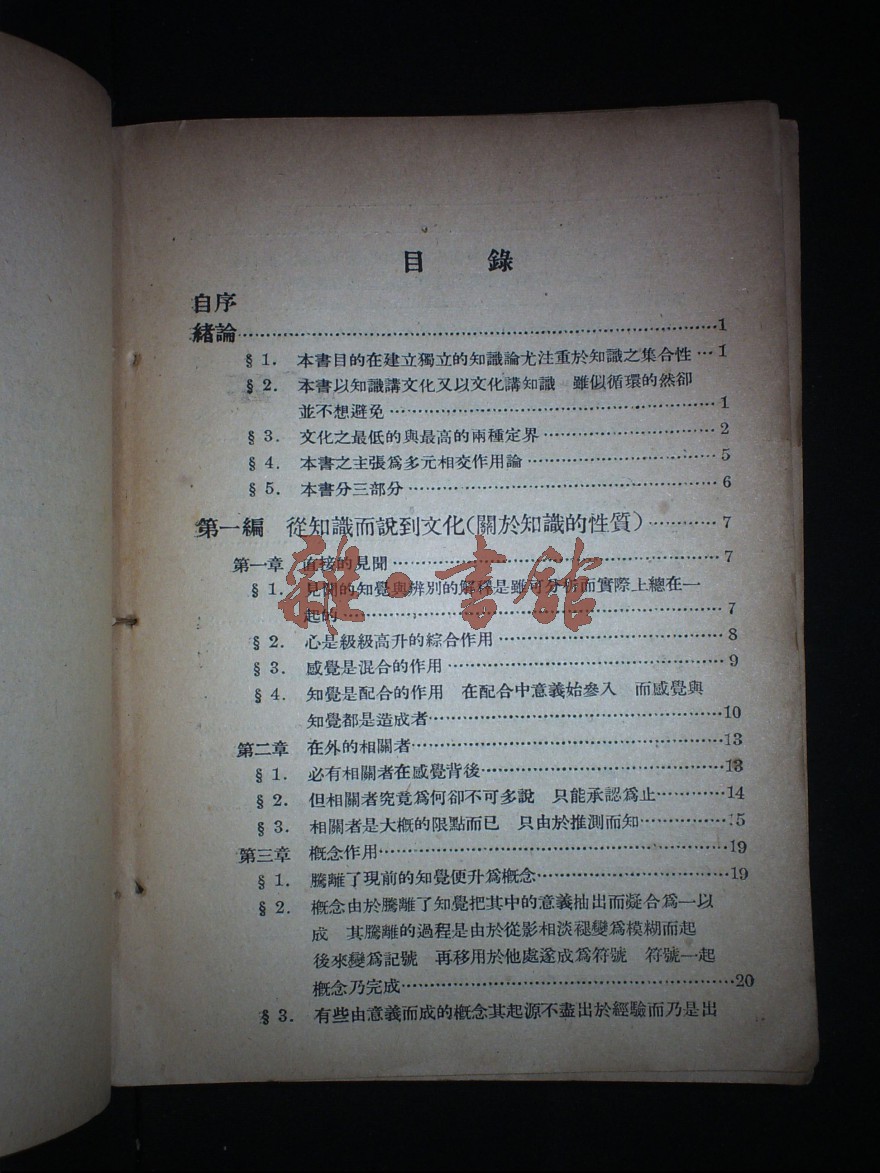 目 錄
自序
緒論……1
§ 1. 本書目的在建立獨立的知識論尤注重於知識之集合性…1
§ 2. 本書以知識講文化又以文化講知識 雖似循環的然卻
並不想避免……1
§ 3. 文化之最低的與最高的兩種定界……2
§ 4. 本書之主張爲多元相交作用論……5
§ 5. 本書分三部分……6
第一編 從知識而說到文化(關於知識的性質)……7
第一章 直接的見聞……7
§ 1. 見聞的知覺與辨別的解釋是雖可分析而實際上總在一
起的……7
§ 2. 心是級級高升的綜合作用……8
§ 3. 感覺是混合的作用……9
§ 4. 知覺是配合的作用 在配合中意義始參入 而感覺與
知覺都是造成者……10
第二章 在外的相關者……13
§ 1. 必有相關者在感覺背後……13
§ 2. 但相關者究竟爲何卻不可多說 只能承認爲止……14
§ 3. 相關者是大概的限點而已 只由於推測而知……15
第三章 概念作用……19
§ 1. 騰離了現前的知覺便升爲概念……19
§ 2. 概念由於騰離了知覺把其中的意義抽出而凝合爲一以
成 其騰離的過程是由於從影相淡褪變爲模糊而起
後來變爲記號 再移用於他處遂成爲符號 符號一起
概念乃完成……20
§ 3. 有些由意義而成的概念其起源不盡出於經驗而乃是出
雜·書館